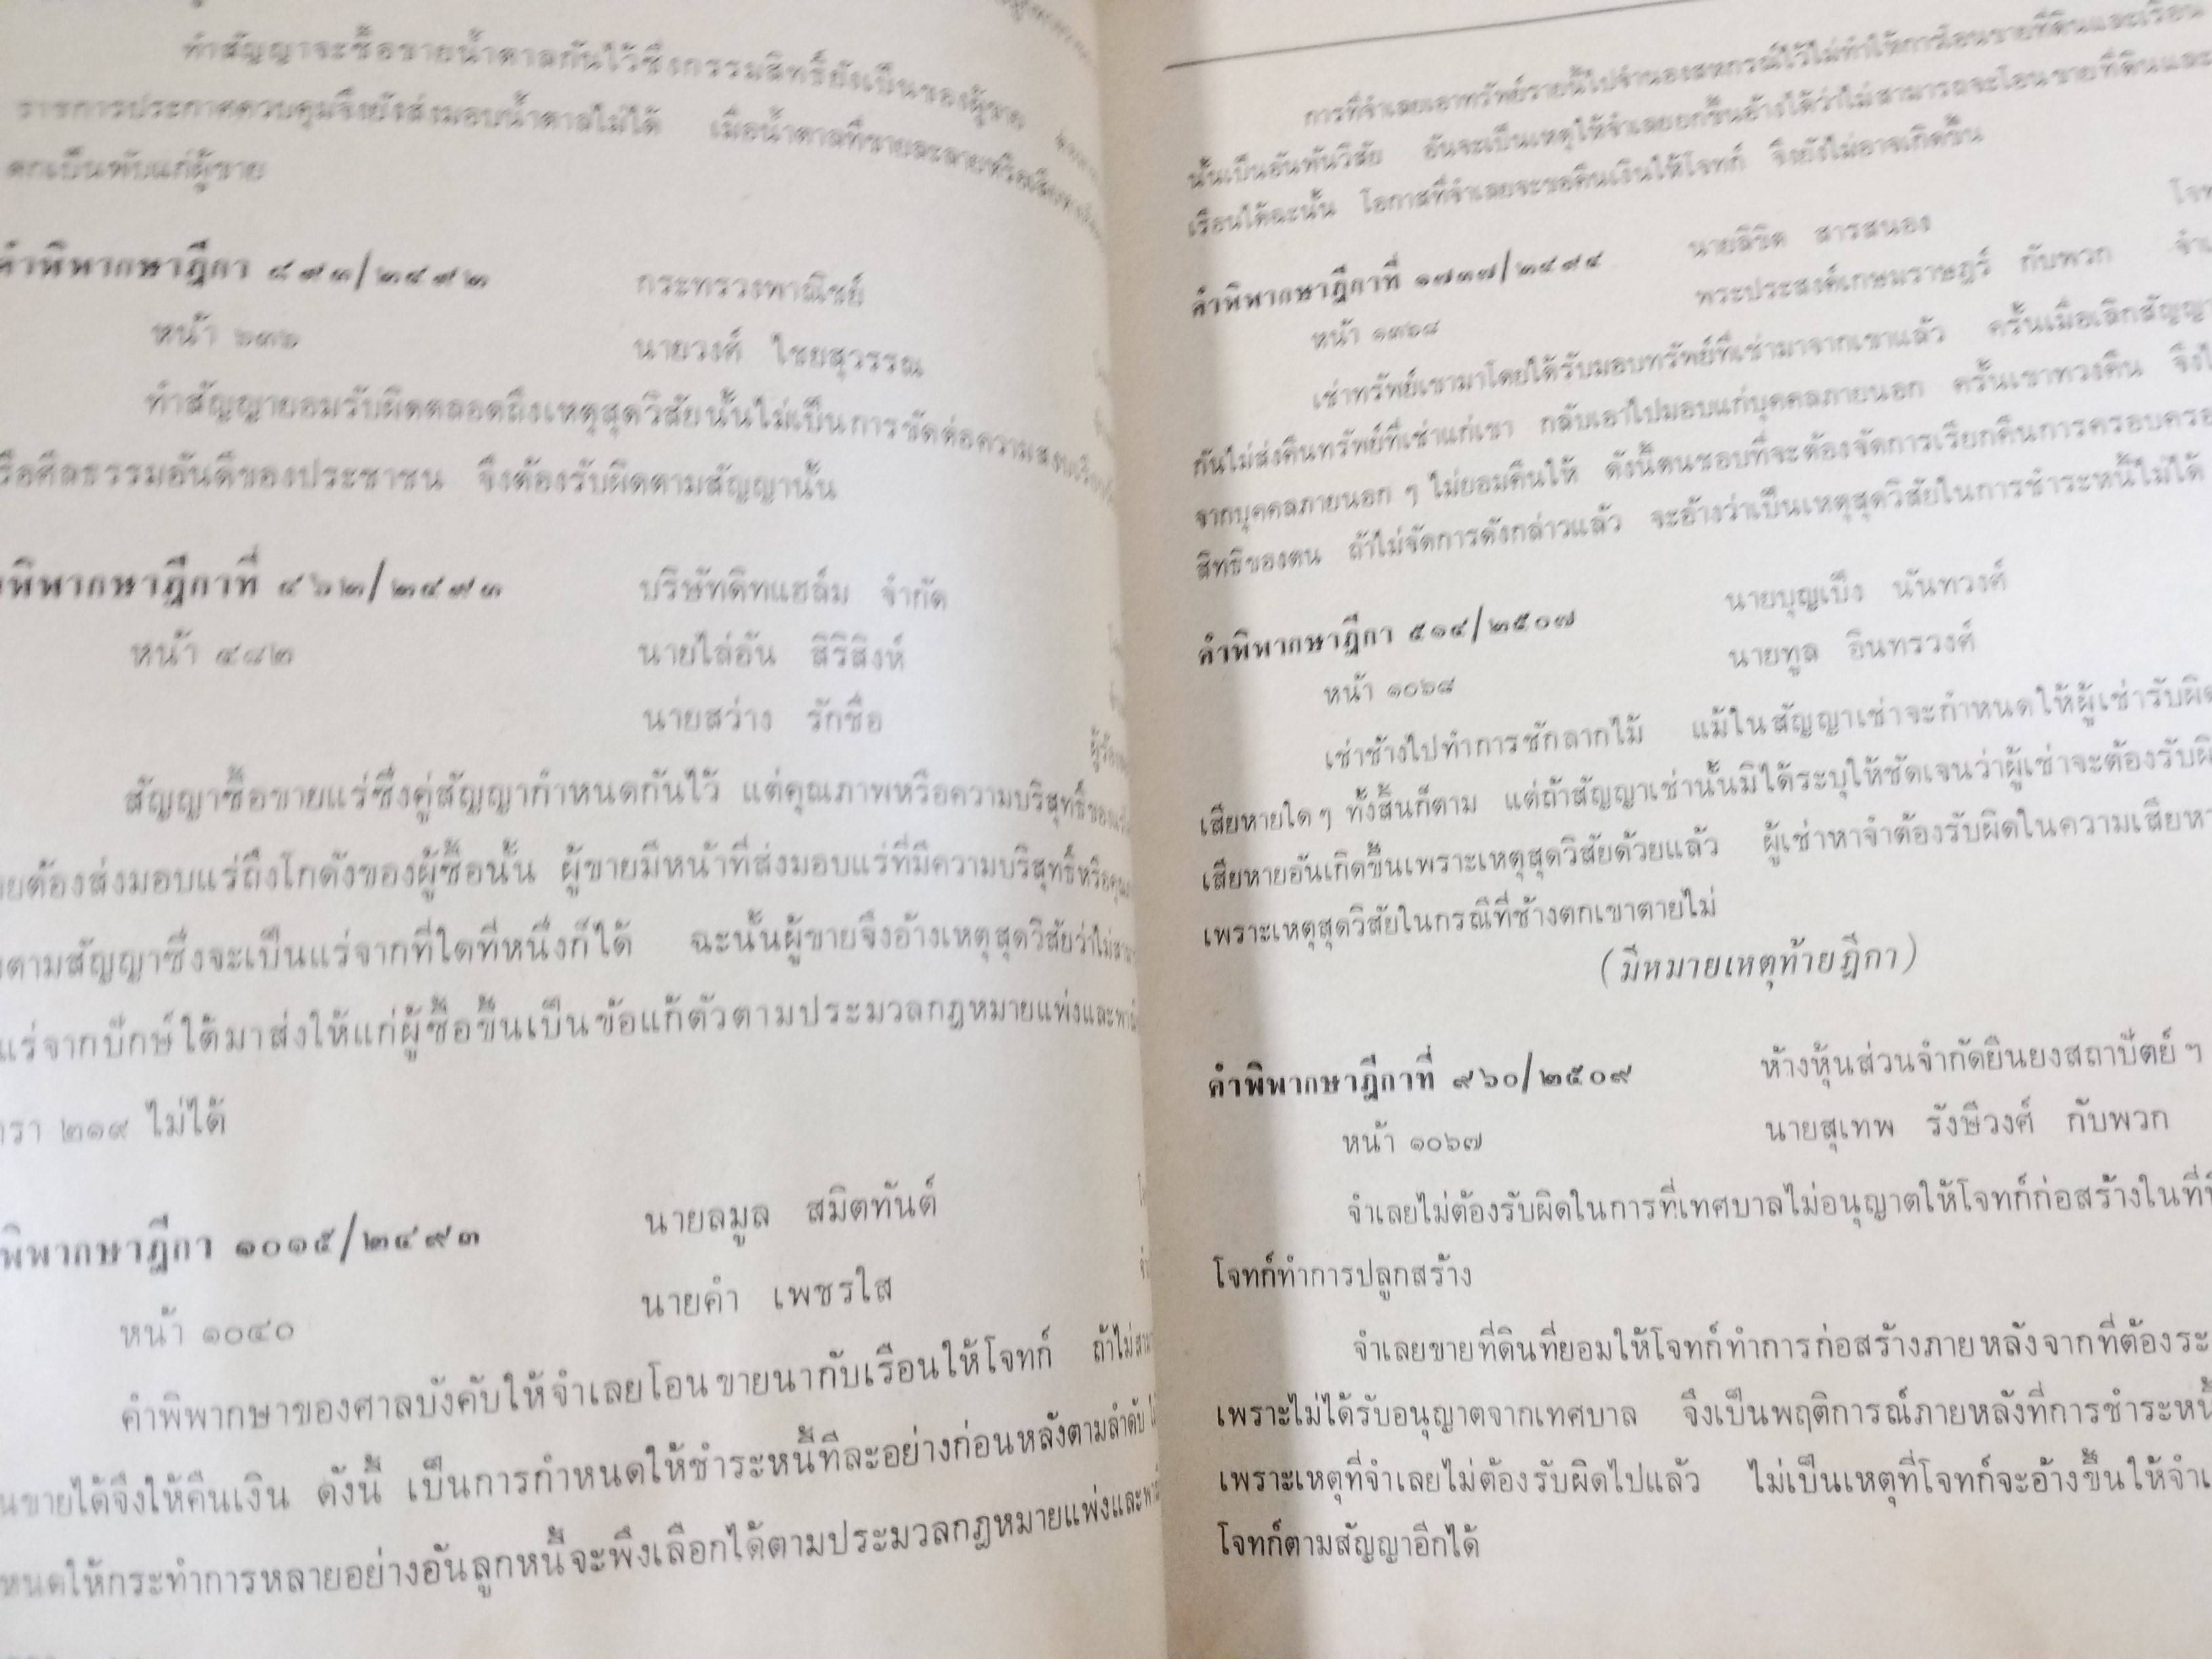 ทำสัญญาจะซื้อขายน้ำตาลกันไว้ซึ่งกรรมสิทธิ์ยังเป็นของผู้ขาย
ราชการประกาศควบคุมจึงยังส่งมอบน้ำตาลไม่ได้ เมื่อน้ำตาลที่ขายละลาย
ตกเป็นพับแก่ผู้ขาย
คำพิพากษาฎีกา
กระทรวงพาณิชย์
หน้า
นายวงศ์ ไชยสุวรรณ
ทำสัญญายอมรับผิดตลอดถึงเหตุสุดวิสัยนั้นไม่เป็นการขัดต่อความสงบเรียบร้อย
รือศีลธรรมอันดีของประชาชน จึงต้องรับผิดตามสัญญานั้น
พิพากษาฎีกาที่ ๔๖๒/๒๔๙๓
บริษัทดิทแฮล์ม จำกัด
หน้า ๔๘๒
นายไล่อัน สิริสิงห์
นายสว่าง รักซื่อ
สัญญาซื้อขายแร่ซึ่งคู่สัญญากำหนดกันไว้ แต่คุณภาพหรือความบริสุทธิ์ของ
ยต้องส่งมอบแร่ถึงโกดังของผู้ซื้อนั้น ผู้ขายมีหน้าที่ส่งมอบแร่ที่มีความบริสุทธิ์หรือ
ตามสัญญาซึ่งจะเป็นแร่จากที่ใดที่หนึ่งก็ได้ ฉะนั้นผู้ขายจึงอ้างเหตุสุดวิสัยว่าไม่
แร่จากปักษ์ใต้มาส่งให้แก่ผู้ซื้อขึ้นเป็นข้อแก้ตัวตามประมวลกฎหมายแพ่งและ
รา ๒๑๙ ไม่ได้
พิพากษาฎีกา ๑๐๑๕/๒๔๙๓
นายลมูล สมิตทันต์
หน้า ๑๐๔๐
นายคำ เพชรใส
คำพิพากษาของศาลบังคับให้จำเลยโอนขายนากับเรือนให้โจทก์ ถ้าไม่
นขายได้จึงให้คืนเงิน ดังนี้ เป็นการกำหนดให้ชำระหนี้ทีละอย่างก่อนหลังตามลำดับ
หนดให้กระทำการหลายอย่างอันลูกหนี้จะพึงเลือกได้ตามประมวลกฎหมายแพ่งและ
การที่จำเลยเอาทรัพย์รายนี้ไปจำนองสหกรณ์ไว้ไม่ทำให้การโอนขายที่ดินและเรือน
นั้นเป็นอันพ้นวิสัย อันจะเป็นเหตุให้จำเลยยกขึ้นอ้างได้ว่าไม่สามารถจะโอนขายที่ดินและ
เรือนได้ฉะนั้น โอกาสที่จำเลยจะขอคืนเงินให้โจทก์ จึงยังไม่อาจเกิดขึ้น
คำพิพากษาฎีกาที่ ๑๗๓๗/๒๔๙๔
นายลิขิต สารสนอง
หน้า ๑๓๖๘
พระประสงค์เกษมราษฎร์ กับพวก
เช่าทรัพย์เขามาโดยได้รับมอบทรัพย์ที่เช่ามาจากเขาแล้ว ครั้นเมื่อเลิกสัญญา
กันไม่ส่งคืนทรัพย์ที่เช่าแก่เขา กลับเอาไปมอบแก่บุคคลภายนอก ครั้นเขาทวงคืน จึง
จากบุคคลภายนอก ๆ ไม่ยอมคืนให้ ดังนี้ตนชอบที่จะต้องจัดการเรียกคืนการครอบครอ
สิทธิของตน ถ้าไม่จัดการดังกล่าวแล้ว จะอ้างว่าเป็นเหตุสุดวิสัยในการชำระหนี้ไม่ได้
คำพิพากษาฎีกา ๕๑๔/๒๕๐๗
นายบุญเบ็ง นันทวงศ์
หน้า ๑๐๖๘
นายทูล อินทรวงศ์
เช่าช้างไปทำการชักลากไม้ แม้ในสัญญาเช่าจะกำหนดให้ผู้เช่ารับผิด
เสียหายใด ๆ ทั้งสิ้นก็ตาม แต่ถ้าสัญญาเช่านั้นมิได้ระบุให้ชัดเจนว่าผู้เช่าจะต้องรับผิ
เสียหายอันเกิดขึ้นเพราะเหตุสุดวิสัยด้วยแล้ว ผู้เช่าหาจำต้องรับผิดในความเสียหา
เพราะเหตุสุดวิสัยในกรณีที่ช้างตกเขาตายไม่
(มีหมายเหตุท้ายฎีกา)
คำพิพากษาฎีกาที่ ๙๖๐/๒๕๐๙
ห้างหุ้นส่วนจำกัดยืนยงสถาปัตย์ ฯ
หน้า ๑๐๖๗
นายสุเทพ รังษีวงศ์ กับพวก
จำเลยไม่ต้องรับผิดในการที่เทศบาลไม่อนุญาตให้โจทก์ก่อสร้างในที่
โจทก์ทำการปลูกสร้าง
จำเลยขายที่ดินที่ยอมให้โจทก์ทำการก่อสร้างภายหลังจากที่ต้องระ
เพราะไม่ได้รับอนุญาตจากเทศบาล จึงเป็นพฤติการณ์ภายหลังที่การชำระหนี้
เพราะเหตุที่จำเลยไม่ต้องรับผิดไปแล้ว ไม่เป็นเหตุที่โจทก์จะอ้างขึ้นให้จำเ
โจทก์ตามสัญญาอีกได้